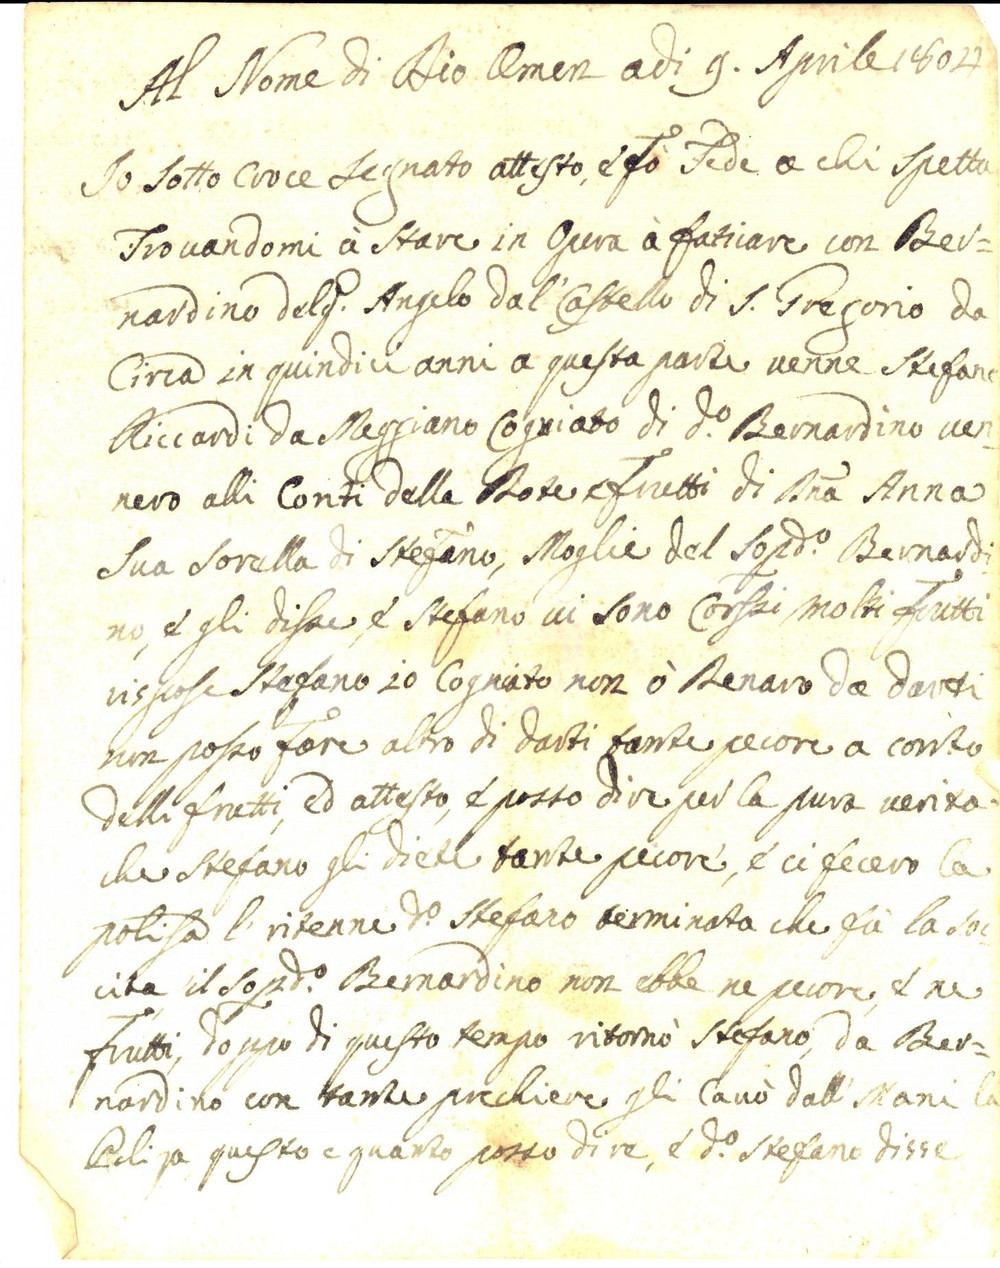 Al Nome di Dio Amen adi 9. Aprile 1804
Io Sotto Croce Segnato attesto, é fò Fede a chi Spetta
Trovandomi à Stare in Opera à faticare con Ber=
nardino del q. Angelo dal' Castello di S. Gregorio da
Circa in quindici anni a questa parte venne Stefano
Riccardi da Meggiano Cogniato di d.o Bernardino ven=
nero alli Conti della Dote e frutti di Anna
Sua Sorella di Stefano, Moglie del Sopd.o Bernardi
no, é gli disse, é Stefano vi sono Corsi molti Frutti
rispose Stefano io Cogniato non ò Denaro da darti
non posso fare altro di darti tante pecore a conto
delli frutti, ed attesto, é posso dire per la pura verita
che Stefano gli diete tante pecore, é ci fecero la
polisa l' ritenne d.o Stefano terminata che fù la Soc=
cita il Sopd.o Bernardino non ebbe ne pecore, é ne
frutti, doppo di questo tempo ritornò Stefano, da Ber=
nardino con tante prechiere gli Cavò dall' Mani la
Polisa questo e quanto posso dire, é d.o Stefano disse